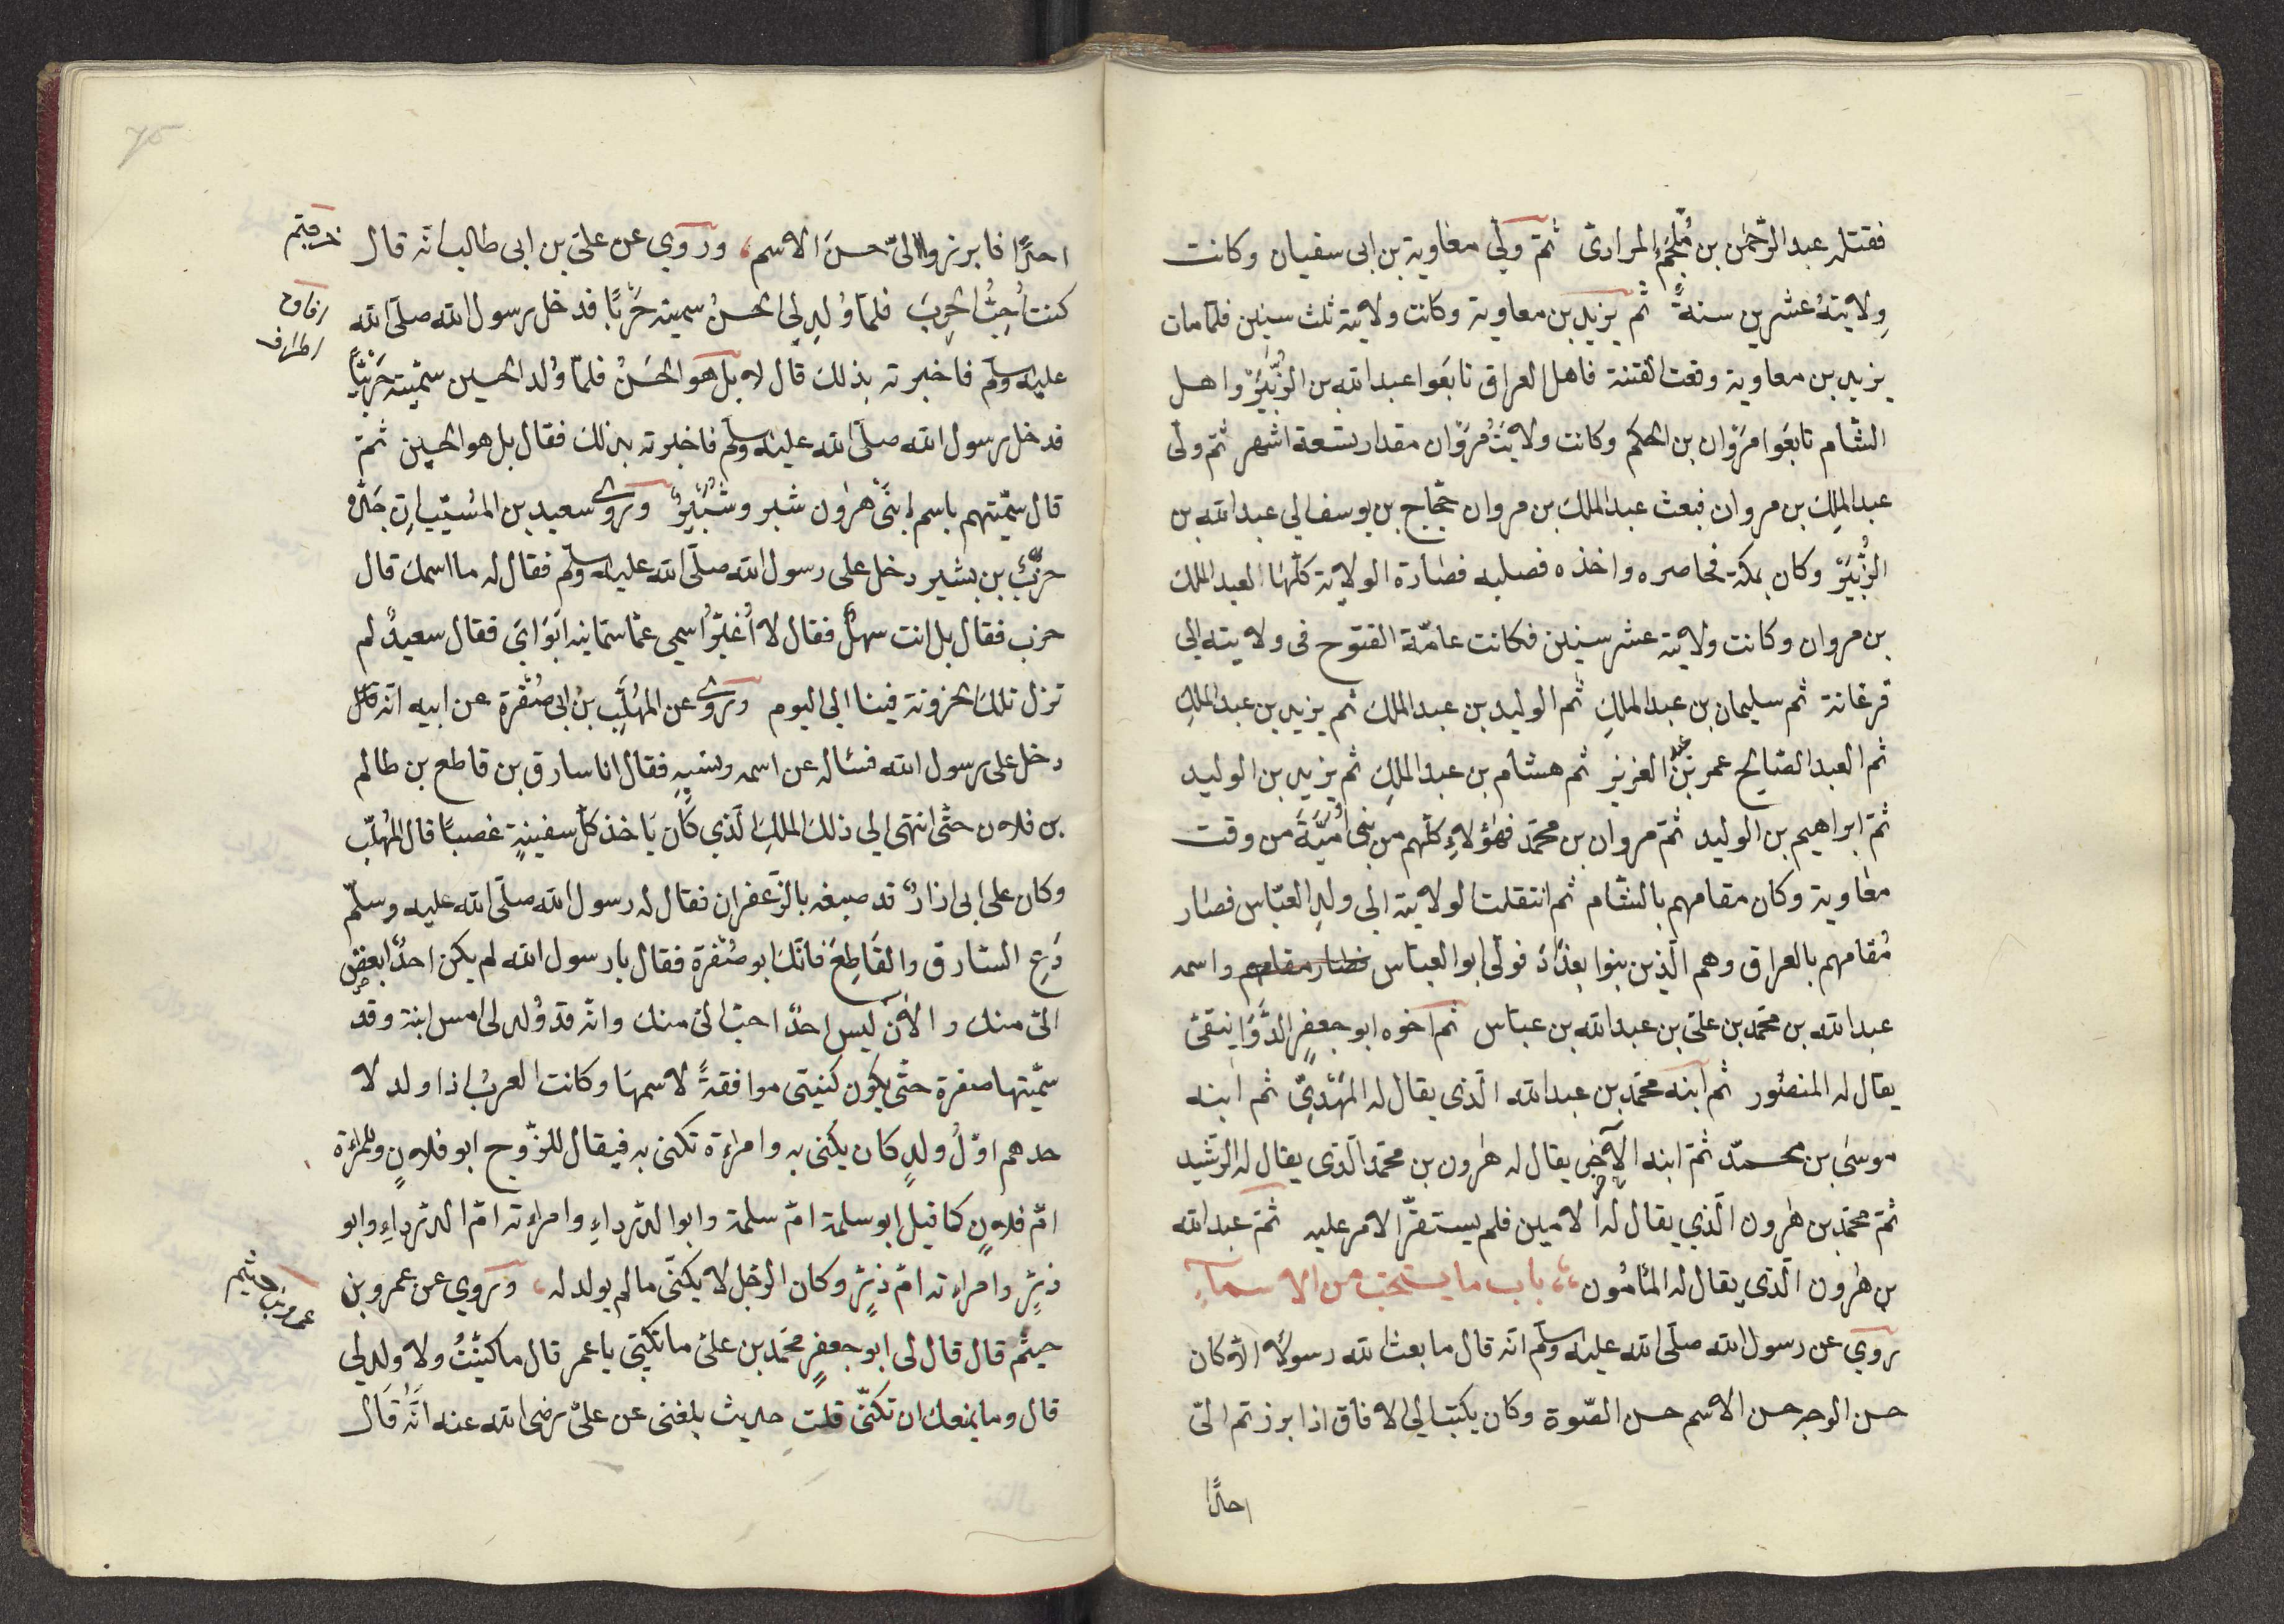 فقتله عبد الرّحمٰن بن مُلْجَمُ المرادىّ ثمّ ولّي معٰاوية بن ابى سفيان وكانت
وِلايتهُ عشرين سنةً ثم يزيد بن معاوية وكانت ولايته ثلث سنين فلمّا مات
يزيد بن معاوية وقعت الفتنة فاهل العراق تابَعَوا عبد الله بن الزُّبَيْرِ واهل
الشّام تابَعَوا مَرْوٰان بن الحكم وكانت ولايَتُ مَرْوٰان مقدار تسعة اشهر ثمّ ولّى
عبد الملِك بن مروان فبعث عبد الملك بن مروان حجّاج بن يوسف الي عبد الله بن
الزُّبَيْرِ وكان بمكة فحاصره واخذه فصلبه فصٰارة الولاية كلّهٰا لعبد الملك
بن مروان وكانت ولايته عشر سنين فكانت عامّة الفتوح فى ولايته الي
فرغانة ثم سليمان بن عبد الملكِ ثم الوليد بن عبد الملك ثم يزيد بن عبد الملكِ
ثم العبد الصّالح عمر بْنِ عبد العزيز ثم هشام بن عبد الملكِ ثم يزيد بن الوليد
ثمّ ابراهيم بن الوليد ثمّ مروان بن محمّد فهٰؤلاءِ كلّهم من بنى اُمَيّةَ من وقت
معٰاوية وكان مقامهم بالشّام ثم انتقلت الولاية الي ولدِ العبّاس فصٰار
مُقامهم بالعراق وهم الّذين بنوا بغدٰادَ فولّى ابو العبّاس فصار مقامهم واسمه
عبد الله بن محمّد بن علىّ بن عبد الله بن عباس ثم اخوه ابو جعفرٍ الدَّوَانيقىّ
يقال له المنصُور ثم ابنه محمّد بن عبد الله الّذى يقال له المَهْدِىُّ ثم ابنه
موسىٰ بن محمّد ثمّ ابنه الآخر يقال له هٰرون بن محمّد الّذى يقال له الرّشيد
ثمّ محمّد بن هٰرون الّذي يقال لهُ الامين فلم يستقرّ الامر عليه ثمّ عبد الله
بن هٰرون الّذى يقال له المٰأمُون باب ما يستحبّ من الاسمآءِ
روي عن رسول الله صلّى الله عليه وسلّم انّه قال ما بعث الله رسولاً الاّ كان
حسن الوجه حسن الاسم حسن الصّوة وكان يكتب الي الافاق اذا برزتم الىّ
احدًا
احدًا فابرزوا الىّ حسنَ الاسم، وروي عن علىّ بن ابى طالب انّه قال
كنت اُحِبُّ الحربَ فلمّا وُلدِ لى الحسنُ سميته حَرْبًا فدخل رسول الله صلّى الله
عليه وسلّم فاخبرته بذلك قال لا بل هو الحَسَنُ فلمّا وُلد الحسين سمّيته حَرْبًا
فدخل رسول الله صلّى الله عليه وسلّم فاخبرته بذلك فقال بل هو الحسين ثمّ
قال سمّيتهم باسم ابنَىْ هٰرون شبر وشُبَيْرُ وروى سعيد بن المُسَيّبِ انّ جَدّهُ
حزْبُ بن بشير دخل على رسول الله صلّى الله عليه وسلّم فقال له ما اسمك قال
حزب فقال بل انت سهلٌ فقال لا اُغَيّرُ اسمي عمّا سمّانيه ابَوَايَ فقال سعيدٌ لم
تزل تلك الحزونة فينا الى اليوم وروى عن المُهَلّبِ بن ابى صُفْرة عن ابيه انّه قال
دخل على رسول الله فسئاله عن اسمه ونسبهِ فقال انا سارق بن قاطع بن ظالم
بن فلان حتّى انتهى الي ذلك الملكِ الّذي كٰان يَاخذ كلّ سفينةٍ غصبًا قال المُهلّب
وكان على ابى ازارٌ قد صبغه بالزّعفران فقال له رسول الله صلّى الله عليه وسلّم
دَعِ السّارق والقَاطِعَ فانّك ابو صُفرة فقال يا رسول الله لم يكن احدٌ ابغض
الىّ منك والآن ليس احدٌ احبّ الىّ منك وانّه قد وُلد لى امس ابنة وقد
سمّيتها صفرة حتّى يكون كنيتى موافقةً لاسمهٰا وكانت العربُ اذا ولد لا
حدهم اوّلُ ولدٍ كان يكنى به وامراءة تكنى به فيقال للزّوج ابو فلانٍ وللمرأة
امّ فلانٍ كما قيل ابو سلمة امّ سلمة وابوا الدّرداءِ وامراءته امّ الدّرداءِ وابو
ذرٍّ وامراءته امّ ذرٍّ وكان الرّجل لا يكنّى ما لم يولد له، وروي عن عمرو بن
حيثم قال قال لى ابو جعفرٍ محمّد بن علىّ ما تكنّى يا عمر قال ما كنّيْتُ ولا ولد لي
قال وما يمنعك ان تكنّى قلت حديث بلغنى عن علىّ رضى الله عنه انّهُ قَال